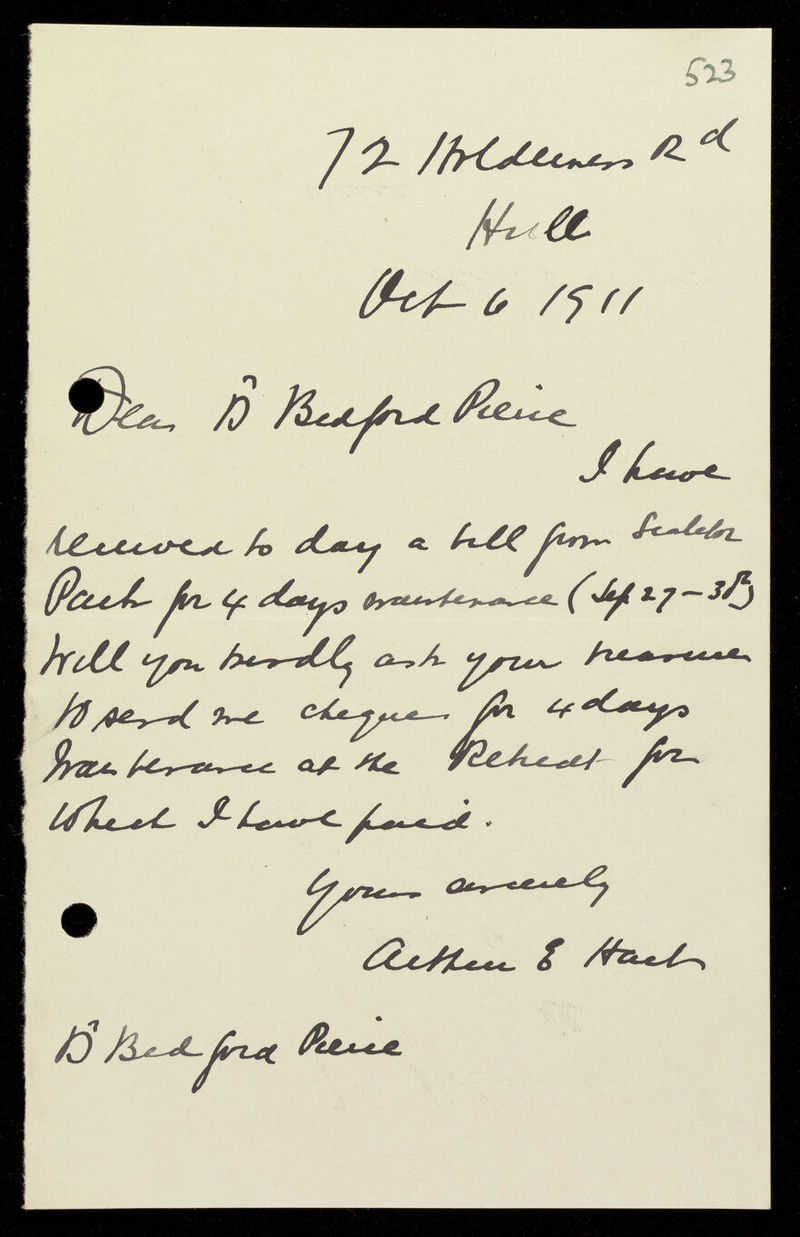 523
72 Holderness Rd
Hull
Oct 6 1911
Dear Dr Bedford Pierce
I have
received to day a bill from Scalebor
Park for 4 days maintenance (Sep 27 - 30th)
Will you kindly ask your treasurer
to send me cheque for 4 days
Maintenance at the Retreat for
which I have paid.
Yours sincerely
Arthur E Hart
Dr Bedford Pierce